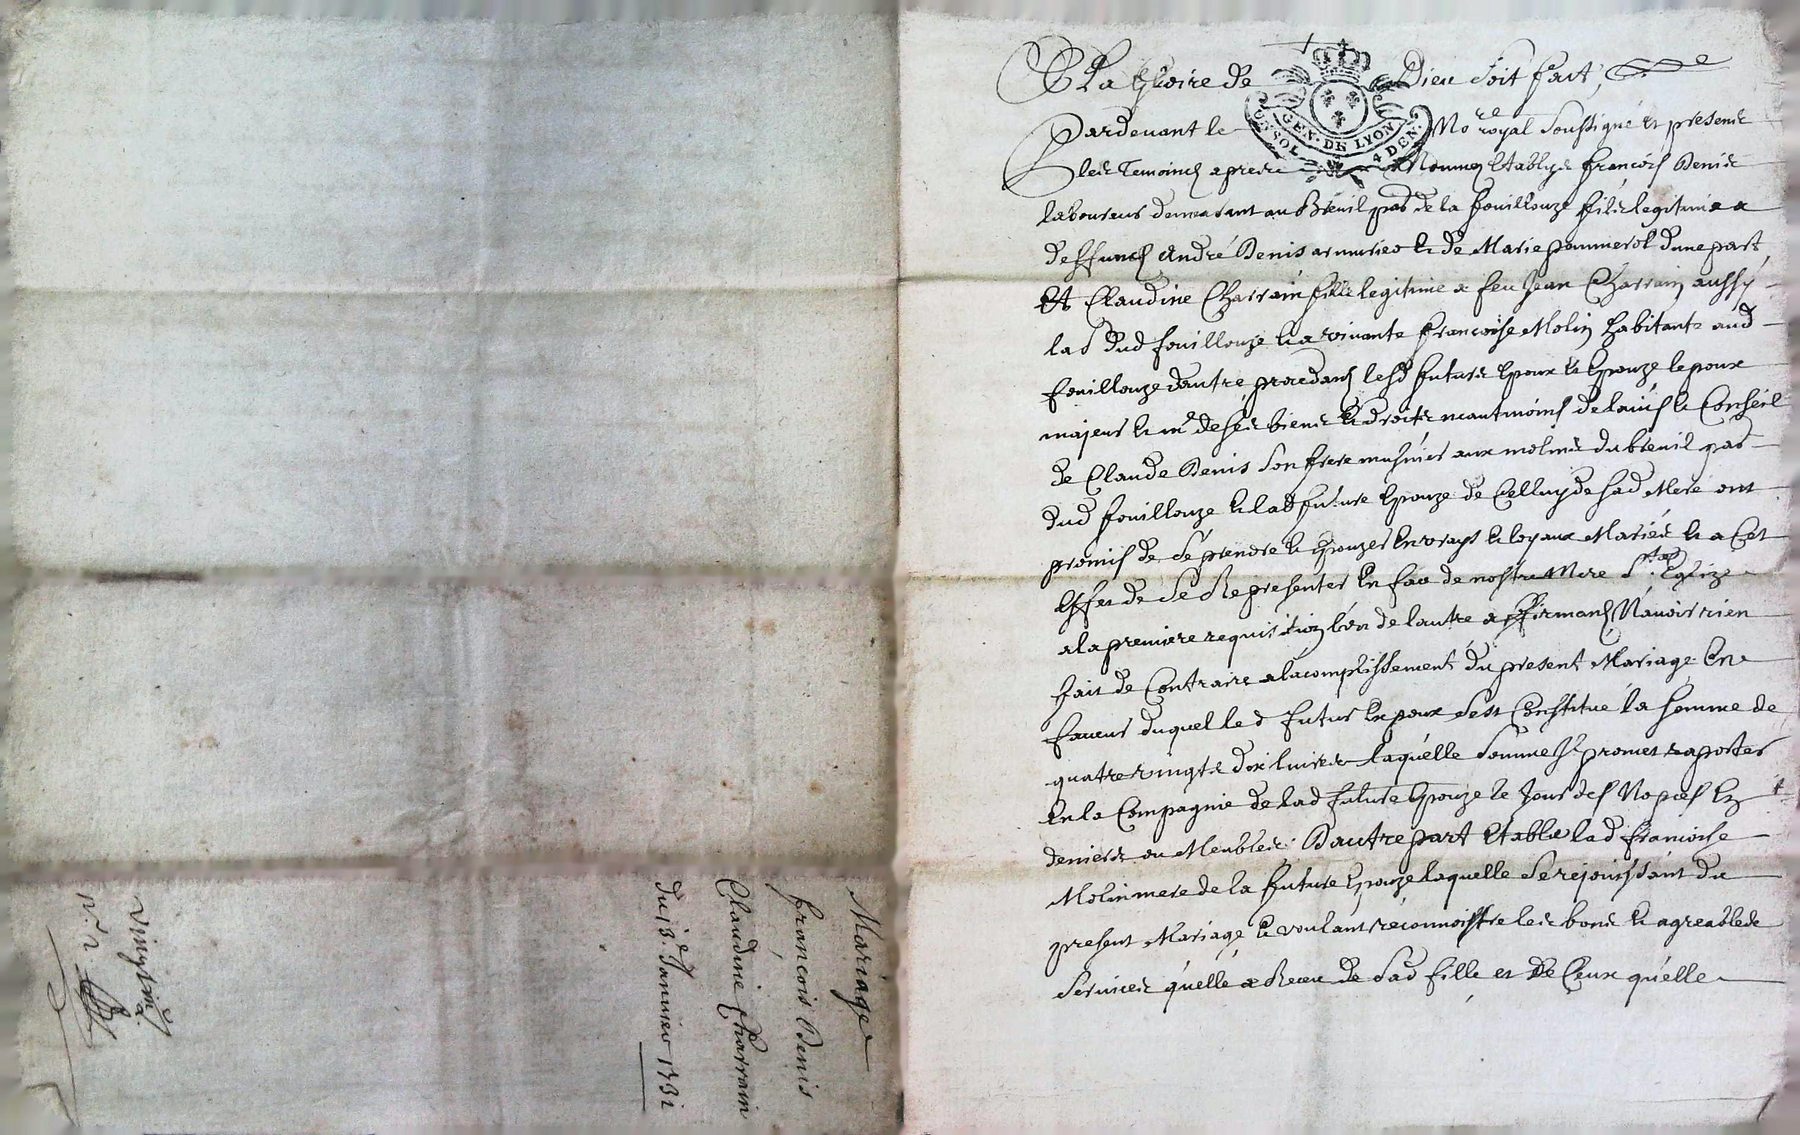 Mariage
françois Denis
Claudine Charrain
du 13.e Janvier 1732
vingtiè
n.° 2
A La Gloire de Dieu Soit fait,
GEN. DE LYON
4 DEN.
Pardevant le No.re royal Soussigné et presents
les Temoins apres Nommez Etablys françois Denis
laboureur demeurant au Breuil par de la fouillouze fils legitime a
deffunct André Denis armurier & de Marie pommerol dune part
Et Claudine Charrain fille legitime a feu Jean Charrain aussy
lad dud fouillouze & a vivante francoise Molin habitante aud
fouillouze dautre procedans lesd futurs Epoux & Epouze lepoux
majeur & m.e de ses biens & droits neantmoins de lavis & Conseil
de Claude Denis son frere musnier aux molins du breuil par
dud fouillouze & lad future Epouze de Celluy de sad Mere ont
promis de se prendre & Epouzer En vrays & loyaux Mariés & a Cet
Effet de Se Representer En face de nostre Mere S.te Eglize
a la premiere requisition lun de lautre affirmans Navoir rien
fait de Contraire alacomplissement du present Mariage En
faveur duquel led futur Expoux Sest Constitué la Somme de
quatre vingts dix livres laquelle Somme Il promet raporter
En la Compagnie de lad future Epouze le Jour des Nopces En
deniers ou Meubles. Dautre part Etablie lad francoise
Molin mere de la future Epouze laquelle Se rejouissant du
present Mariage & voulant reconnoistre les bons & agreables
Services quelle a Receu de Sad fille et de Ceux quelle